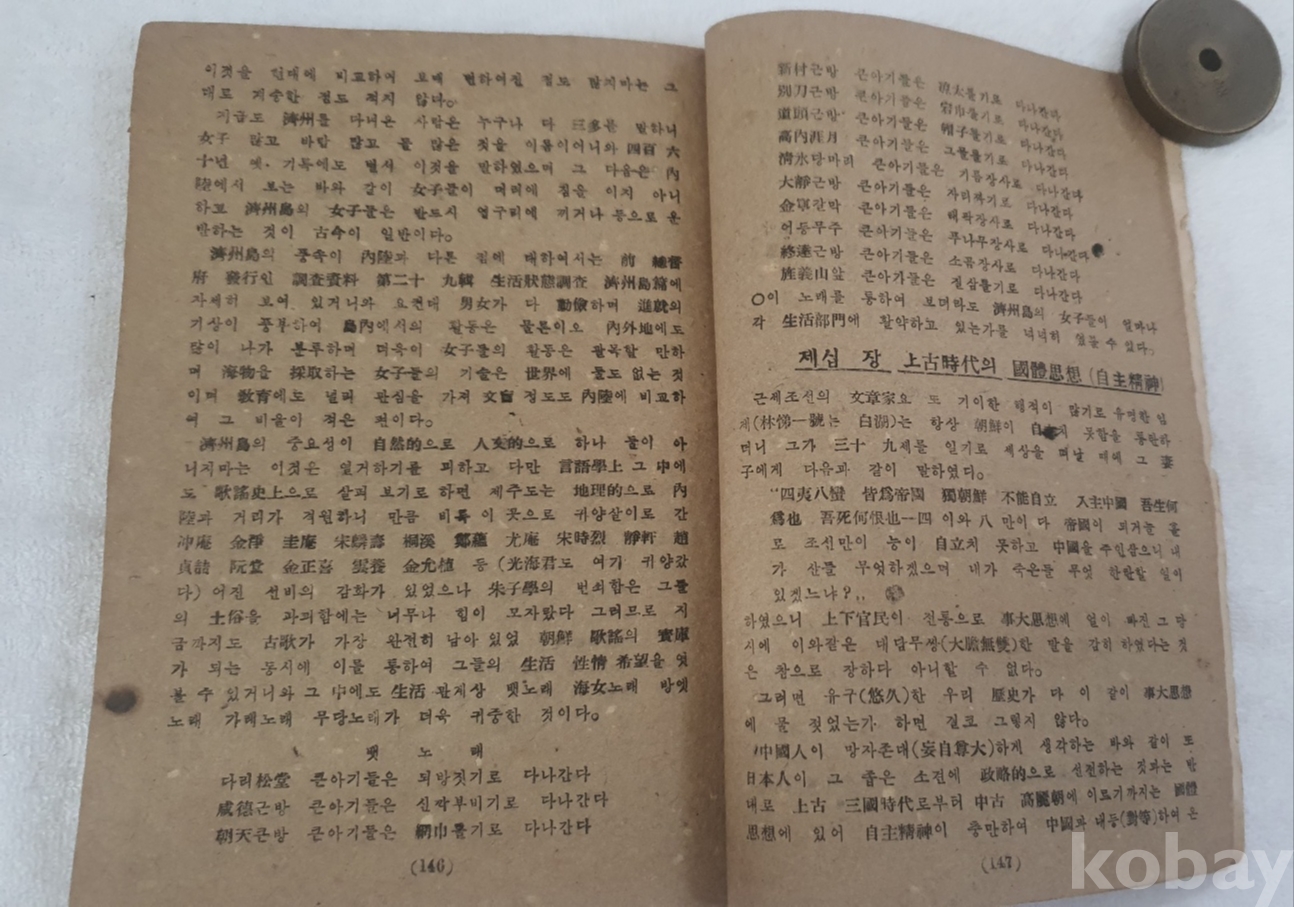 이것을 현대에 비교하여 보매 변하여진 점도 많지마는 그
대로 계승한 점도 적지 않다。
지금도 濟州를 다녀온 사람은 누구나 다 三多를 말하니
女子 많고 바람 많고 돌 많은 것을 이름이어니와 四百 六
十년 옛 기록에도 벌서 이것을 말하였으며 그 다음은 內
陸에서 보는 바와 같이 女子들이 머리에 짐을 이지 아니
하고 濟州島의 女子들은 반드시 옆구리에 끼거나 등으로 운
반하는 것이 古今이 일반이다。
濟州島의 풍속이 內陸과 다른 점에 대하여서는 前 總督
府 發行인 調査資料 第二十 九輯 生活狀態調査 濟州島篇에
자세히 보여 있거니와 요컨대 男女가 다 勤儉하며 進取의
기상이 풍부하여 島內에서의 활동은 물론이오 內外地에도
많이 나가 분투하며 더욱이 女子들의 활동은 괄목할 만하
며 海物을 採取하는 女子들의 기술은 世界에 둘도 없는 것
이며 敎育에도 널리 관심을 가져 文盲 정도도 內陸에 비교하
여 그 비율이 적은 편이다。
濟州島의 중요성이 自然的으로 人文的으로 하나 둘이 아
니지마는 이것은 일거하기를 피하고 다만 言語學上 그 中에
도 歌謠史上으로 살펴 보기로 하면 제주도는 地理的으로 內
陸과 거리가 격원하니 만큼 비록 이 곳으로 귀양살이로 간
冲庵 金淨 圭庵 宋麟壽 桐溪 鄭蘊 尤庵 宋時烈 靜軒 趙
貞喆 阮堂 金正喜 雲養 金允植 등 (光海君도 여기 귀양갔
다) 어진 선비의 감화가 있었으나 朱子學의 번쇠함은 그들
의 土俗을 파괴함에는 너무나 힘이 모자랐다 그러므로 지
금까지도 古歌가 가장 완전히 남아 있었 朝鮮 歌謠의 寶庫
가 되는 동시에 이를 통하여 그들의 生活 性情 希望을 엿
볼 수 있거니와 그 中에도 生活 관계상 뱃노래 海女노래 방엣
노래 가래노래 무당노래가 더욱 귀중한 것이다。
뱃 노 래
다리松堂 큰아기들은 되방찟기로 다나간다
咸德근방 큰아기들은 신짝부비기로 다나간다
朝天근방 큰아기들은 網巾틀기로 다나간다
(146)
新村근방 큰아기들은 틀기로 다나간다
別刀근방 큰아기들은 宕巾틀기로 다나간다
道頭근방 큰아기들은 帽子틀기로 다나간다
高內涯月 큰아기들은 그물틀기로 다나간다
淸水당마리 큰아기들은 기름장사로 다나간다
大靜근방 큰아기들은 자리짝기로 다나간다
金寧잔막 큰아기들은 태작장사로 다나간다
어등무주 큰아기들은 푸나무장사로 다나간다
終達근방 큰아기들은 소곰장사로 다나간다
旌義山앞 큰아기들은 질삼틀기로 다나간다
○이 노래를 통하여 보더라도 濟州島의 女子들이 얼마나
각 生活部門에 활약하고 있는가를 넉넉히 엿볼 수 있다。
제십 장 上古時代의 國體思想 (自主精神)
근제조선의 文章家요 또 기이한 행적이 많기로 유명한 임
제(林悌一號는 白湖)는 항상 朝鮮이 自立치 못함을 통탄하
더니 그가 三十 九세를 일기로 세상을 떠날 때에 그 妻
子에게 다음과 같이 말하였다。
“四夷八蠻 皆爲帝國 獨朝鮮 不能自立 入主中國 吾生何
爲也 吾死何恨也一四 이와 八 만이 다 帝國이 되거늘 홀
로 조선만이 능이 自立치 못하고 中國을 주인삼으니 내
가 산들 무엇하겠으며 내가 죽은들 무엇 한탄할 일이
있겠느냐?„
하였으니 上下官民이 전통으로 事大思想에 얼이 빠진 그 당
시에 이와같은 대담무쌍(大膽無雙)한 말을 감히 하였다는 것
은 참으로 장하다 아니할 수 없다。
그러면 유구(悠久)한 우리 歷史가 다 이 같이 事大思想
에 물 젖었는가 하면 결코 그렇지 않다。
中國人이 망자존대(妄自尊大)하게 생각하는 바와 같이 또
日本人이 그 좁은 소견에 政略的으로 선전하는 것과는 반
대로 上古 三國時代로부터 中古 高麗朝에 이르기까지는 國體
思想에 있어 自主精神이 충만하여 中國과 대등(對等)하여 온
(147)
kobay